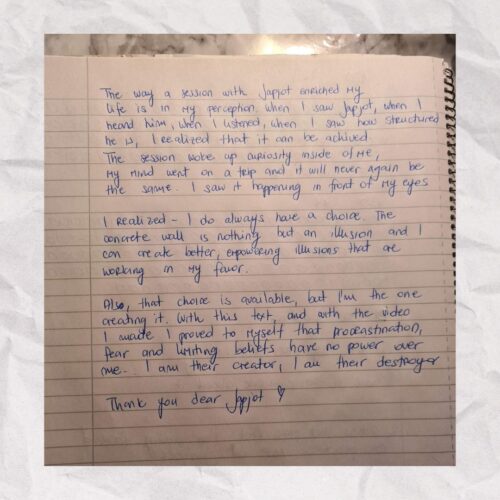 The way a session with Japjot enriched my
life is in my perception. When I saw Japjot, when I
heard him, when I listened, when I saw how structured
he is, I realized that it can be achived.
The session woke up curiosity inside of me,
my mind went on a trip and it will never again be
the same. I saw it happening in front of my eyes
I realized - I do always have a choice. The
concrete wall is nothing but an illusion and I
can create better, empowering illusions that are
working in my favor.
Also, that choice is available, but I'm the one
creating it. With this text, and with the video
I made I proved to myself that procrastination,
fear and limiting beliefs have no power over
me. I am their creator, I am their destroyer
Thank you dear Japjot ♡